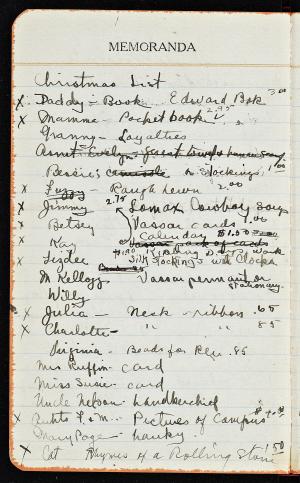 MEMORANDA
Christmas List
x Daddy - Book Edward Bok 3.00
x Mamma - Pocket book 2.95
Granny - Loyalties
Aunt Evelyn - guest towels
Bessie; Stockings 1.00
x Lizzy - Rough hewn 2.00
x Jimmy 2.75 Lomax Cowboy songs
x Betsey Vassar cards 1.00
x Kay Calendar $1.50
Vassar pack of cards
x Lizder Silk stockings with Clocks
M Kellogg Vassar pennant or stationary.
Wily
x Julia - Neck - ribbons .65
x Charlotte - " " 85
Virginia - Beads for Rlu .85
Mrs Ruffin - card
Miss Susie - card
Uncle Nelson - handkerchief
x Ruth T. & M. - Pictures of Campus
Mary Page - hanky.
x Cat Rhymes of a Rolling Stone 1.50